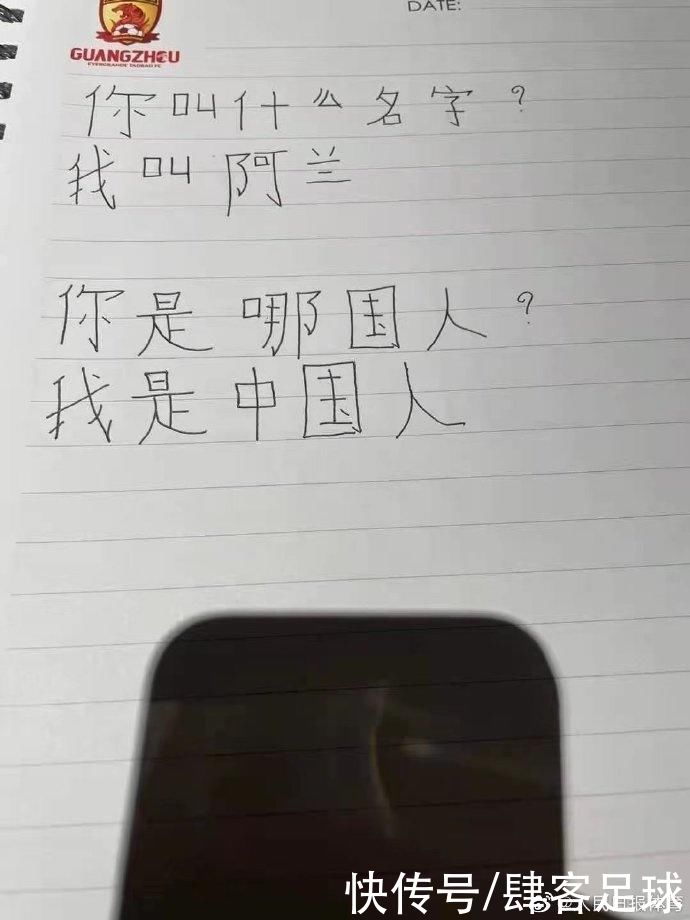 DATE:
GUANGZHOU
EVERGRANDE TAOBAO FC
你叫什么名字？
我叫阿兰
你是哪国人？
我是中国人
快传号/肆客足球
@人民日报体育